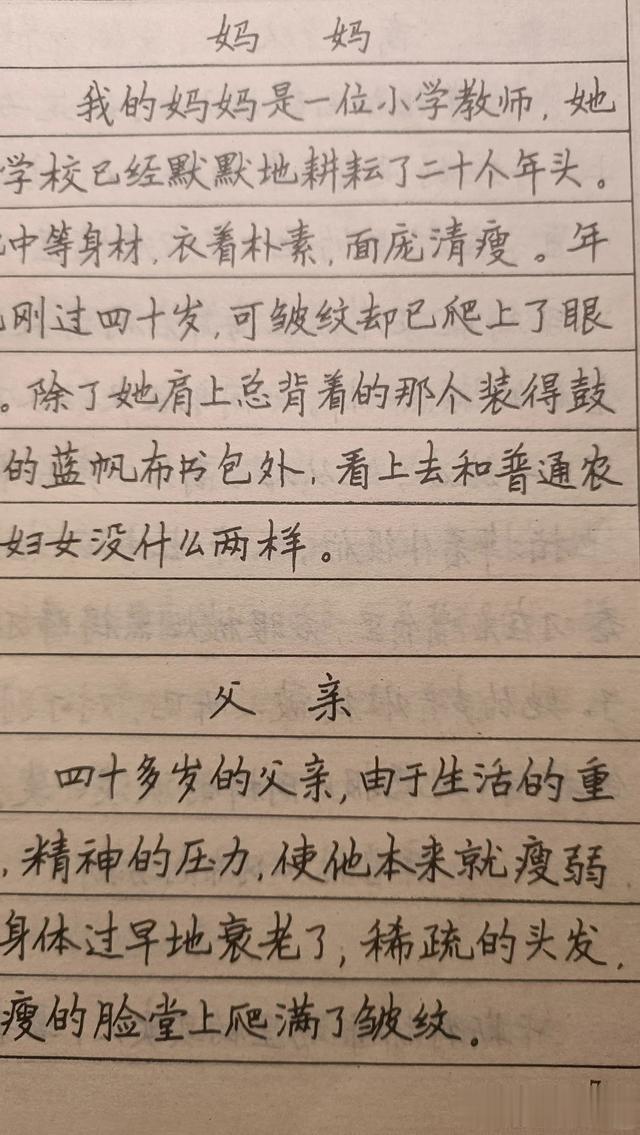 妈 妈
我的妈妈是一位小学教师,她
学校已经默默地耕耘了二十个年头。
中等身材,衣着朴素,面庞清瘦。年
刚过四十岁,可皱纹却已爬上了眼
。除了她肩上总背着的那个装得鼓
的蓝帆布书包外,看上去和普通农
妇女没什么两样。
父 亲
四十多岁的父亲,由于生活的重
,精神的压力,使他本来就瘦弱
身体过早地衰老了,稀疏的头发,
瘦的脸堂上爬满了皱纹。
7